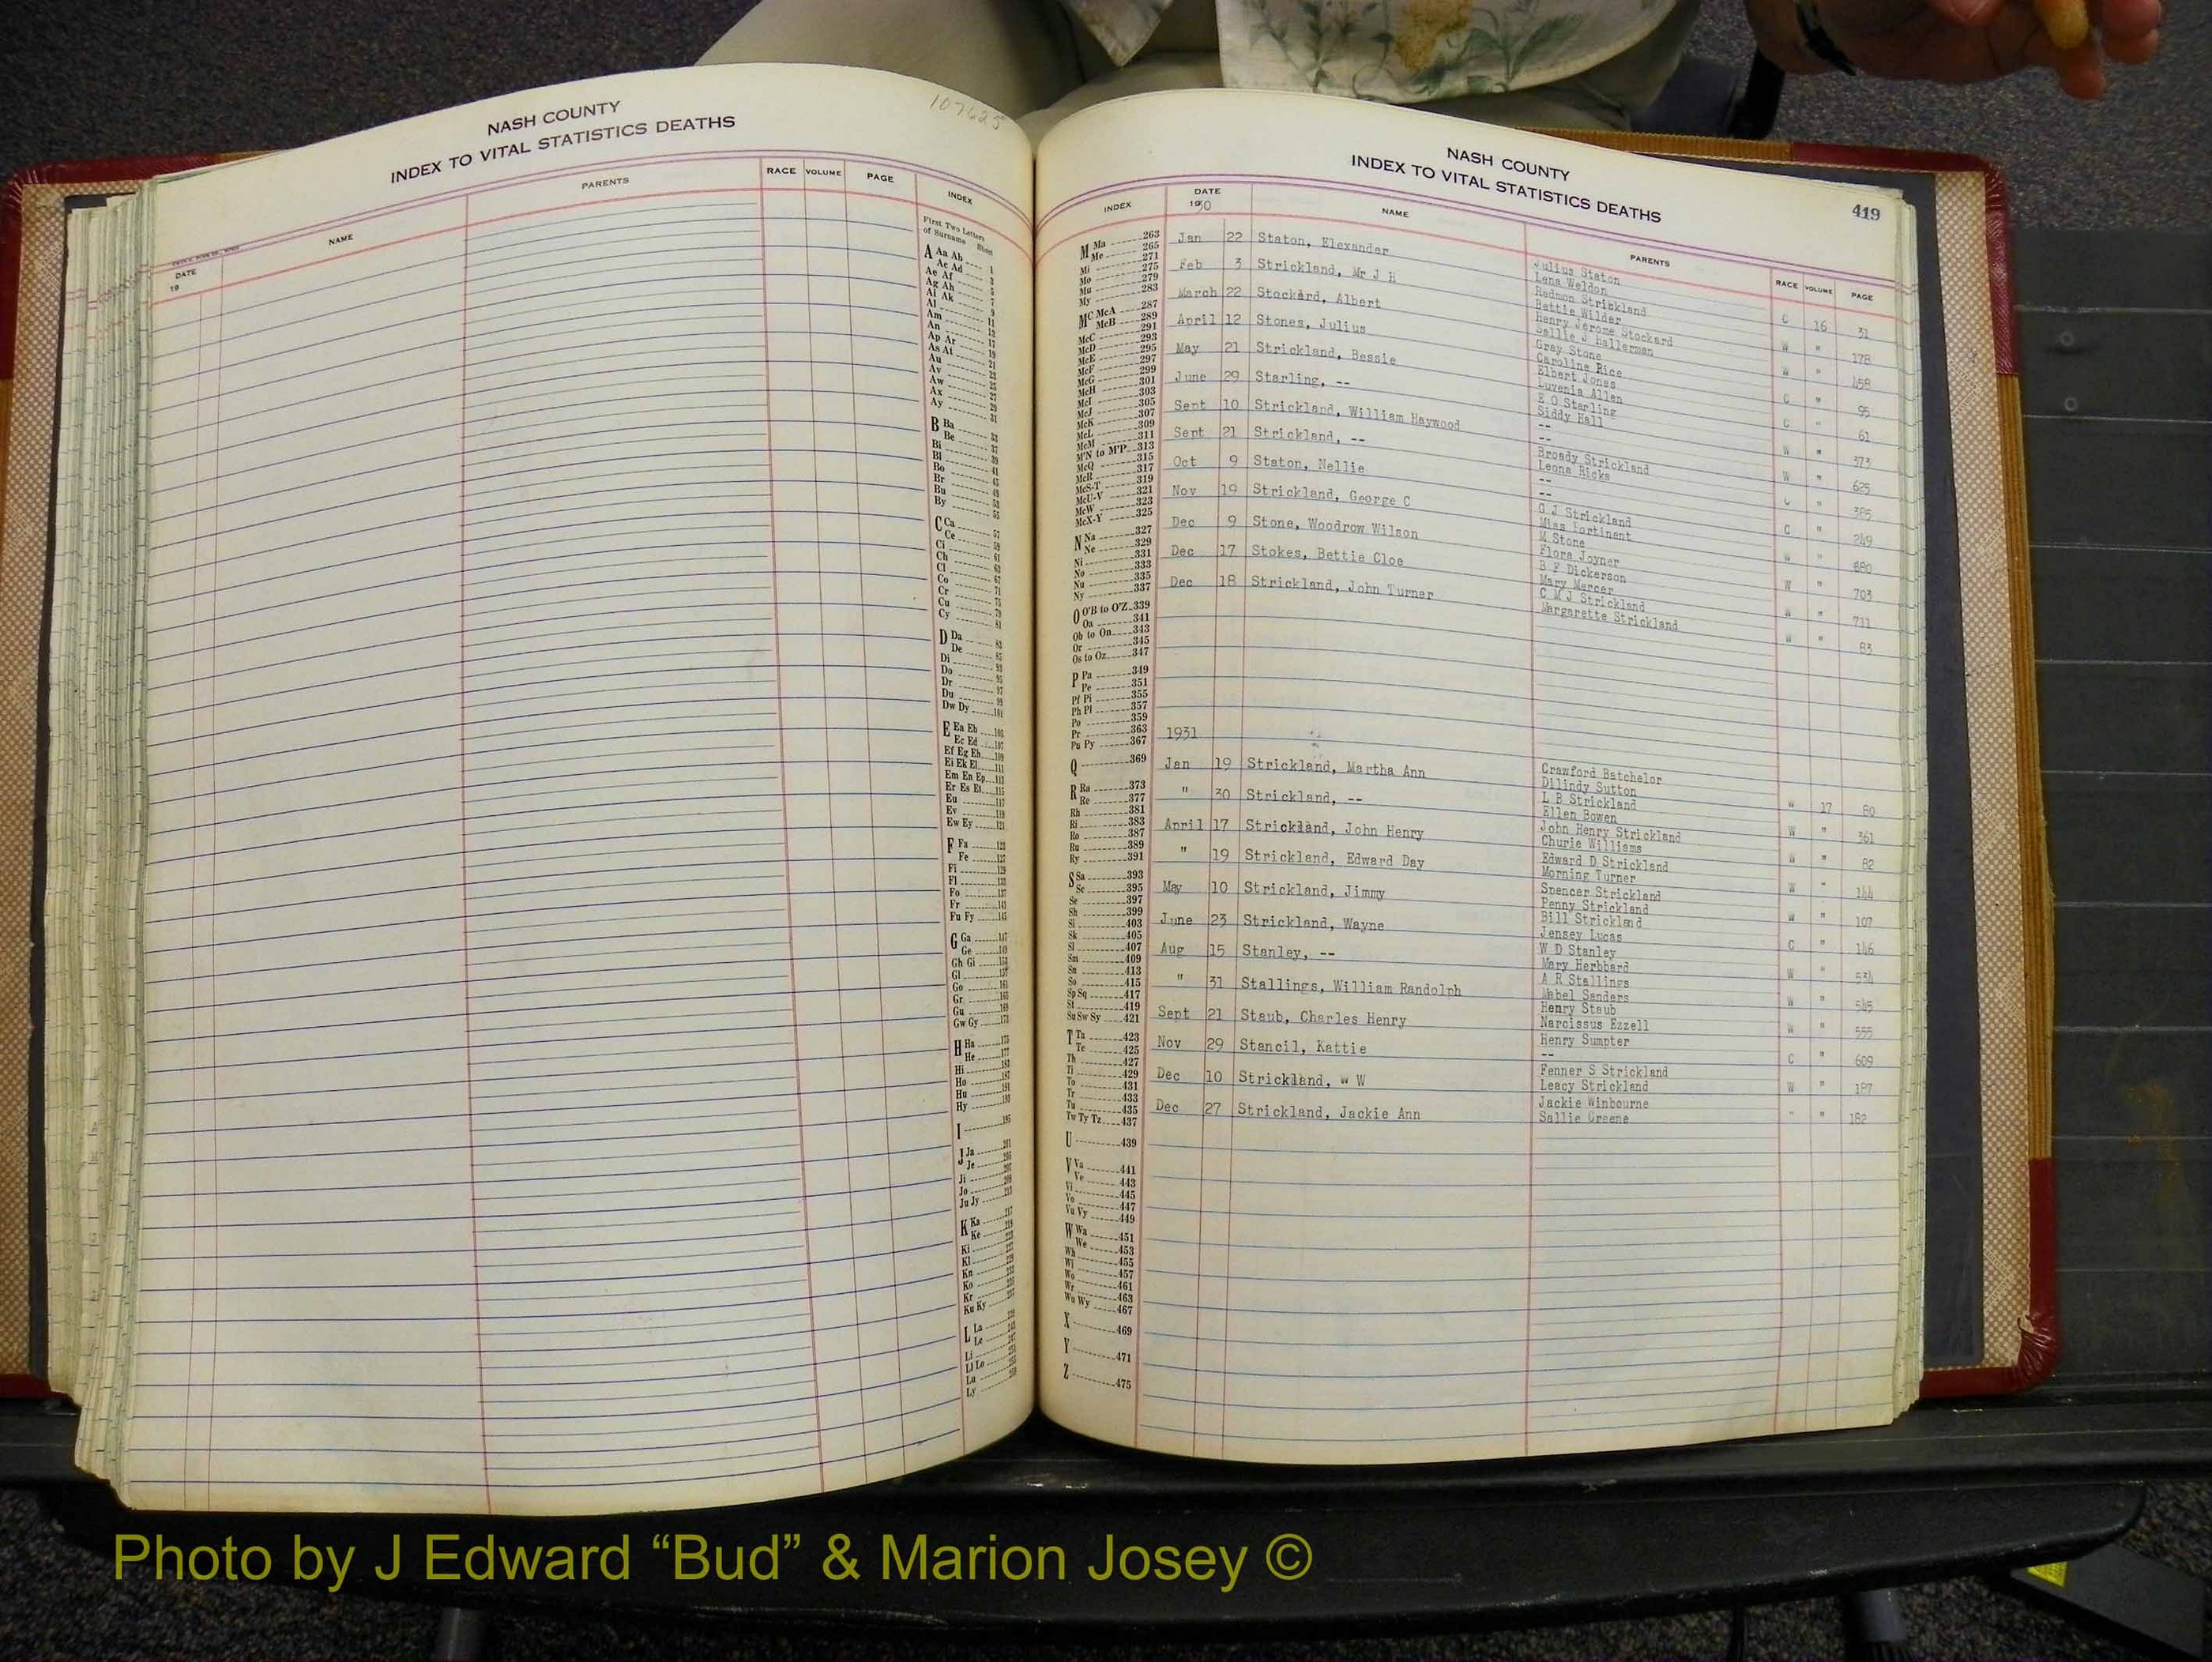 NASH COUNTY
INDEX TO VITAL STATISTICS DEATHS
107625
DATE 19
NAME
PARENTS
RACE
VOLUME
PAGE
INDEX
First Two Letters
of Surname Sheet
A Aa Ab 1
Ac Ad 3
Ae Af 5
Ag Ah 7
Ai Ak 9
Al 11
Am 13
An 17
Ap Ar 19
As At 21
Au 23
Av 25
Aw 27
Ax 29
Ay 31
B Ba 33
Be 37
Bi 39
Bl 41
Bo 43
Br 48
Bu 53
By 55
C Ca 57
Ce 59
Ci 61
Ch 63
Cl 67
Co
Cr 71
Cu
Cy 81
D Da 83
De 85
Di 93
Do 95
Dr 97
Du 99
Dw Dy 101
E Ea Eb 105
Ec Ed 107
Ef Eg Eh 109
Ei Ek El 111
Em En Ep 113
Er Es Et 115
Eu
Ev 119
Ew Ey 121
F Fa
Fe
Fi
Fl
Fo
Fr 141
Fu Fy
G Ga 147
Ge
Gh Gi
Gl
Go 161
Gr
Gu
Gw Gy
H Ha
He
Hi
Ho
Hu
Hy
I 195
J Ja 201
Je
Ji
Jo
Ju Jy
K Ka
Ke
Ki
Kl
Kn
Ko
Kr
Ku Ky
L La
Le
Li
Ll Lo
Lu
Ly
NASH COUNTY
INDEX TO VITAL STATISTICS DEATHS
419
INDEX
DATE 1930
NAME
PARENTS
RACE
VOLUME
PAGE
M Ma 263
Me 265
Mi 271
Mo 275
Mu 279
My 283
Mc McA 287
McB 289
McC 291
McD 293
McE 295
McF 297
McG 299
McH 301
McI 303
McJ 305
McK 307
McL 309
McM 311
M'N to M'P 313
McQ 315
McR 317
McS-T 319
McU-V 321
McW 323
McX-Y 325
N Na 327
Ne 329
Ni 331
No 333
Nu 335
Ny 337
O O'B to O'Z 339
Oa 341
Ob to On 343
Or 345
Os to Oz 347
P Pa 349
Pe 351
Pf Pi 355
Ph Pl 357
Po 359
Pr 363
Pu Py 367
Q 369
R Ra 373
Re 377
Rh 381
Ri 383
Ro 387
Ru 389
Ry 391
S Sa 393
Sc 395
Se 397
Sh 399
Si 403
Sk 405
Sl 407
Sm 409
Sn 413
So 415
Sp Sq 417
St 419
Su Sw Sy 421
T Ta 423
Te 425
Th 427
Ti 429
To 431
Tr 433
Tu 435
Tw Ty Tz 437
U 439
V Va 441
Ve 443
Vi 445
Vo 447
Vu Vy 449
W Wa 451
We 453
Wh 455
Wi 457
Wo 461
Wr 463
Wu Wy 467
X 469
Y 471
Z 475
Jan 22 Staton, Elexander Julius Staton C 16 31
Lena Weldon
Feb 3 Strickland, Mr J H Redmon Strickland W " 178
Bettie Wilder
March 22 Stockard, Albert Henry Jerome Stockard W " 458
Sallie J Hallerman
April 12 Stones, Julius Gray Stone C " 95
Caroline Rice
May 21 Strickland, Bessie Elbert Jones C " 61
Luvenia Allen
June 29 Starling, -- E O Starling W " 373
Siddy Hall
Sept 10 Strickland, William Haywood -- W " 625
--
Sept 21 Strickland, -- Broady Strickland C " 385
Leona Ricks
Oct 9 Staton, Nellie -- C " 249
--
Nov 19 Strickland, George C G J Strickland W " 680
Miss Fortinent
Dec 9 Stone, Woodrow Wilson M Stone W " 703
Flora Joyner
Dec 17 Stokes, Bettie Cloe B F Dickerson W " 711
Mary Mercer
Dec 18 Strickland, John Turner C M J Strickland W " 83
Margarette Strickland
1931
Jan 19 Strickland, Martha Ann Crawford Batchelor W 17 80
Dilindy Sutton
" 30 Strickland, -- L B Strickland W " 361
Ellen Bowen
April 17 Strickland, John Henry John Henry Strickland W " 82
Churie Williams
" 19 Strickland, Edward Day Edward D Strickland W " 144
Morning Turner
May 10 Strickland, Jimmy Spencer Strickland W " 107
Penny Strickland
June 23 Strickland, Wayne Bill Strickland C " 146
Jensey Lucas
Aug 15 Stanley, -- W D Stanley W " 534
Mary Herbbard
" 31 Stallings, William Randolph A R Stallings W " 545
Mabel Sanders
Sept 21 Staub, Charles Henry Henry Staub W " 555
Narcissus Ezzell
Nov 29 Stancil, Kattie Henry Sumpter C " 609
--
Dec 10 Strickland, W W Fenner S Strickland W " 187
Leacy Strickland
Dec 27 Strickland, Jackie Ann Jackie Winbourne " " 182
Sallie Greene
Photo by J Edward “Bud” & Marion Josey ©